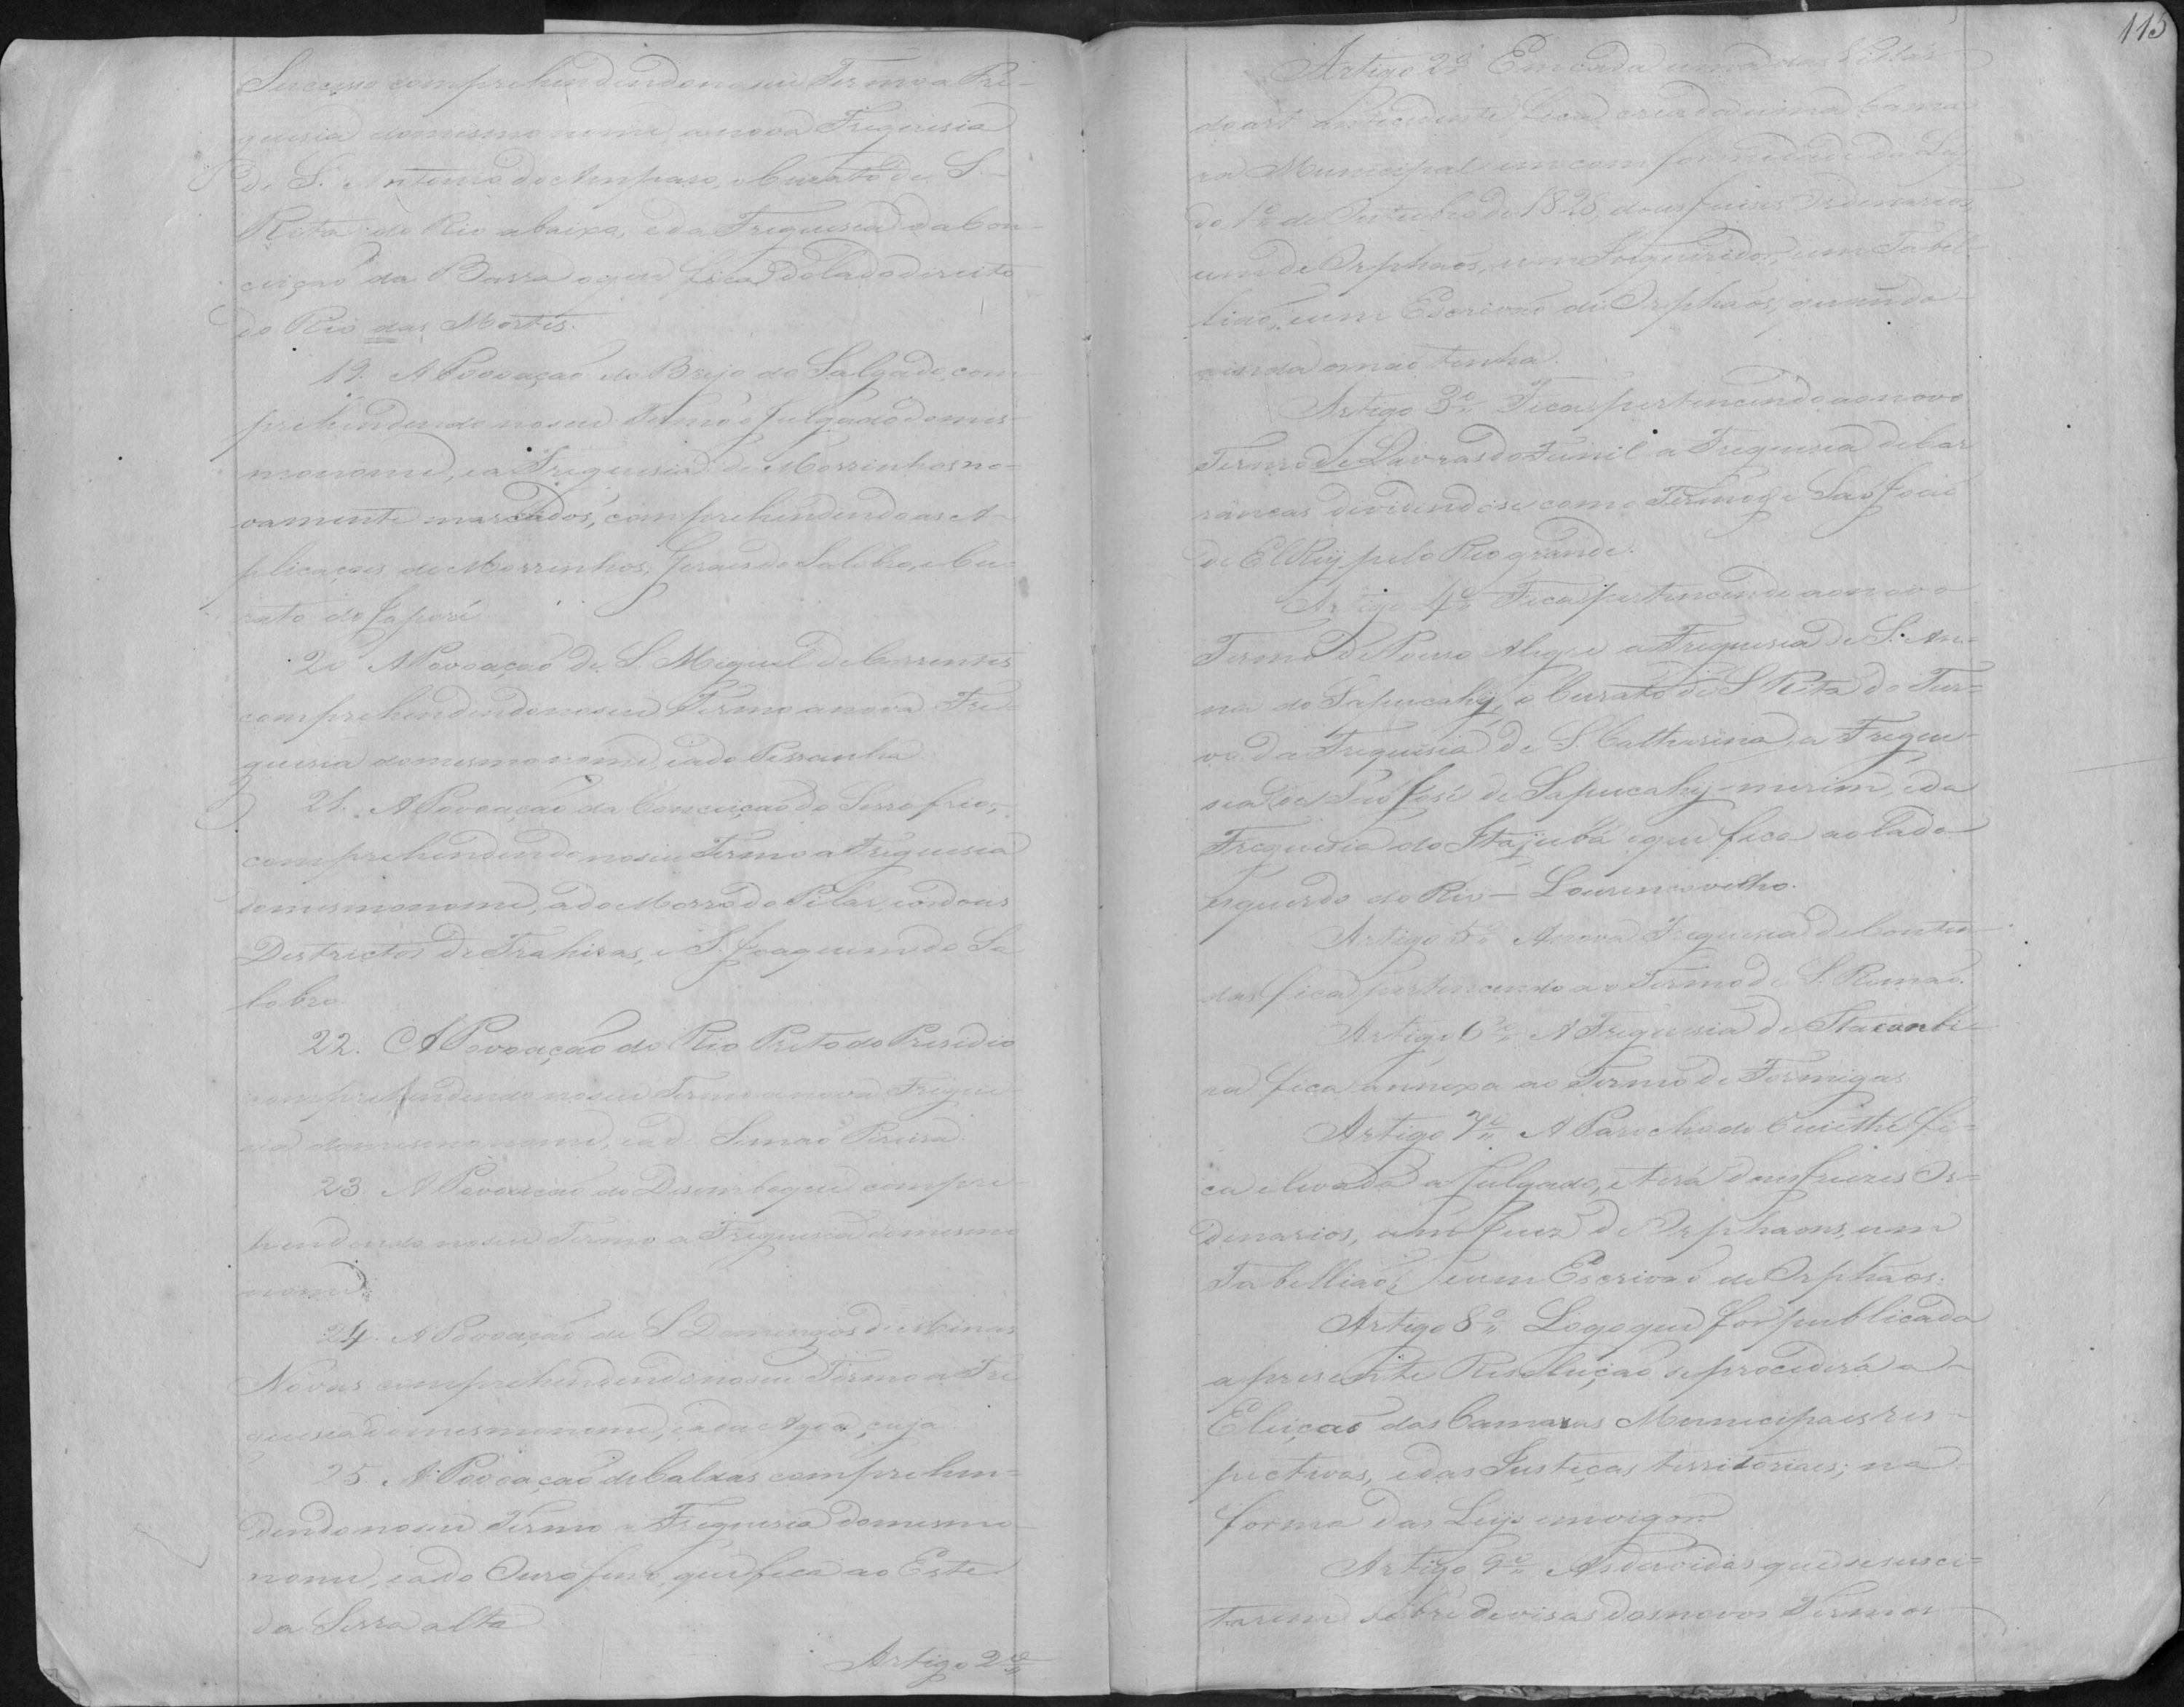 Successo comprehendendo no seu Termo a Fre-
guesia do mesmo nome, a nova Freguesia
de S. Antonio do Amparo, o Curato de S.
Rita do Rio abaixo, e da Freguesia da Con-
ceição da Barra o que fica do lado direito
do Rio das Mortes.
19. A Povoação do Brejo do Salgado, com-
prehendendo no seu Termo o Julgado do mes-
mo nome, e a Freguesia de Morrinhos no-
vamente marcados, comprehendendo as A-
plicações de Morrinhos, Geraes do Salobro, e Cu-
rato do Japoré
20 A Povoação de S. Miguel de Correntes
comprehendendo no seu Termo a nova Fre-
guesia do mesmo nome, e a do Pessanha
21. A Povoação da Conceição do Serro frio,
comprehendendo no seu Termo a Freguesia
do mesmo nome, a do Morro do Pilar, e os dous
Districtos de Trahiras, e S. Joaquim do Sa
lobro
22. A Povoação do Rio Preto do Presidio
comprehendendo no seu Termo a nova Fregue-
sia do mesmo nome, e a de Simão Pereira.
23. A Povoação do Desemboque compre-
hendendo no seu Termo a Freguesia do mesmo
nome.
24. A Povoação de S Domingos de Minas
Novas comprehendendo no seu Termo a Fre
guesia do mesmo nome, e a da Agoa çuja
25. A Povoação de Caldas comprehen-
dendo no seu Termo a Freguesia do mesmo
nome, e a do Ouro fino, que fica ao Este
da Serra alta
Artigo 2º
115
Artigo 2º Em cada uma das Villas
do art. antecedente fica creada uma Cama-
ra Municipal em conformidade da Ley
do 1º de Outubro de 1828, dous Juises Ordinarios,
um de Orphaos, um Inquiridor, um Tabel-
lião, e um Escrivão de Orphãos, quando
ainda o não tenha.
Artigo 3º Fica pertencendo ao novo
Termo de Lavras do Funil a Freguesia de Car-
rancas dividindose com o Termo de São João
de El Rey pelo Rio grande.
Artigo 4º Fica pertencendo ao novo
Termo de Pouso Alegre a Freguesia de S. An-
na do Sapucahy, o Curato de S Rita do Tur-
vo da Freguesia de S. Catharina, a Fregue-
sia de São José de Sapucahy-merim, e da
Freguesia do Itajubá o que fica ao lado
esquerdo do Rio - Lourenco velho.
Artigo 5º A nova Freguesia de Conten-
das fica pertencendo ao Termo de S. Romão.
Artigo 6º A Freguesia de Itacambi-
ra fica annexa ao Termo de Formigas
Artigo 7º A Parochia do Cuiethé fi-
ca elevada a Julgado, e terá dous Juizes Or-
dinarios, um Juiz de Orphaons, um
Tabellião, e um Escrivão de Orphãos.
Artigo 8º Logo que for publicada
a presente Resolução se procederá a
Eleição das Camaras Municipaes res-
pectivas, e das Justiças territoriaes; na
forma das Leys em vigor.
Artigo 9º As duvidas que se susci-
tarem sobre devisas dos novos Termos